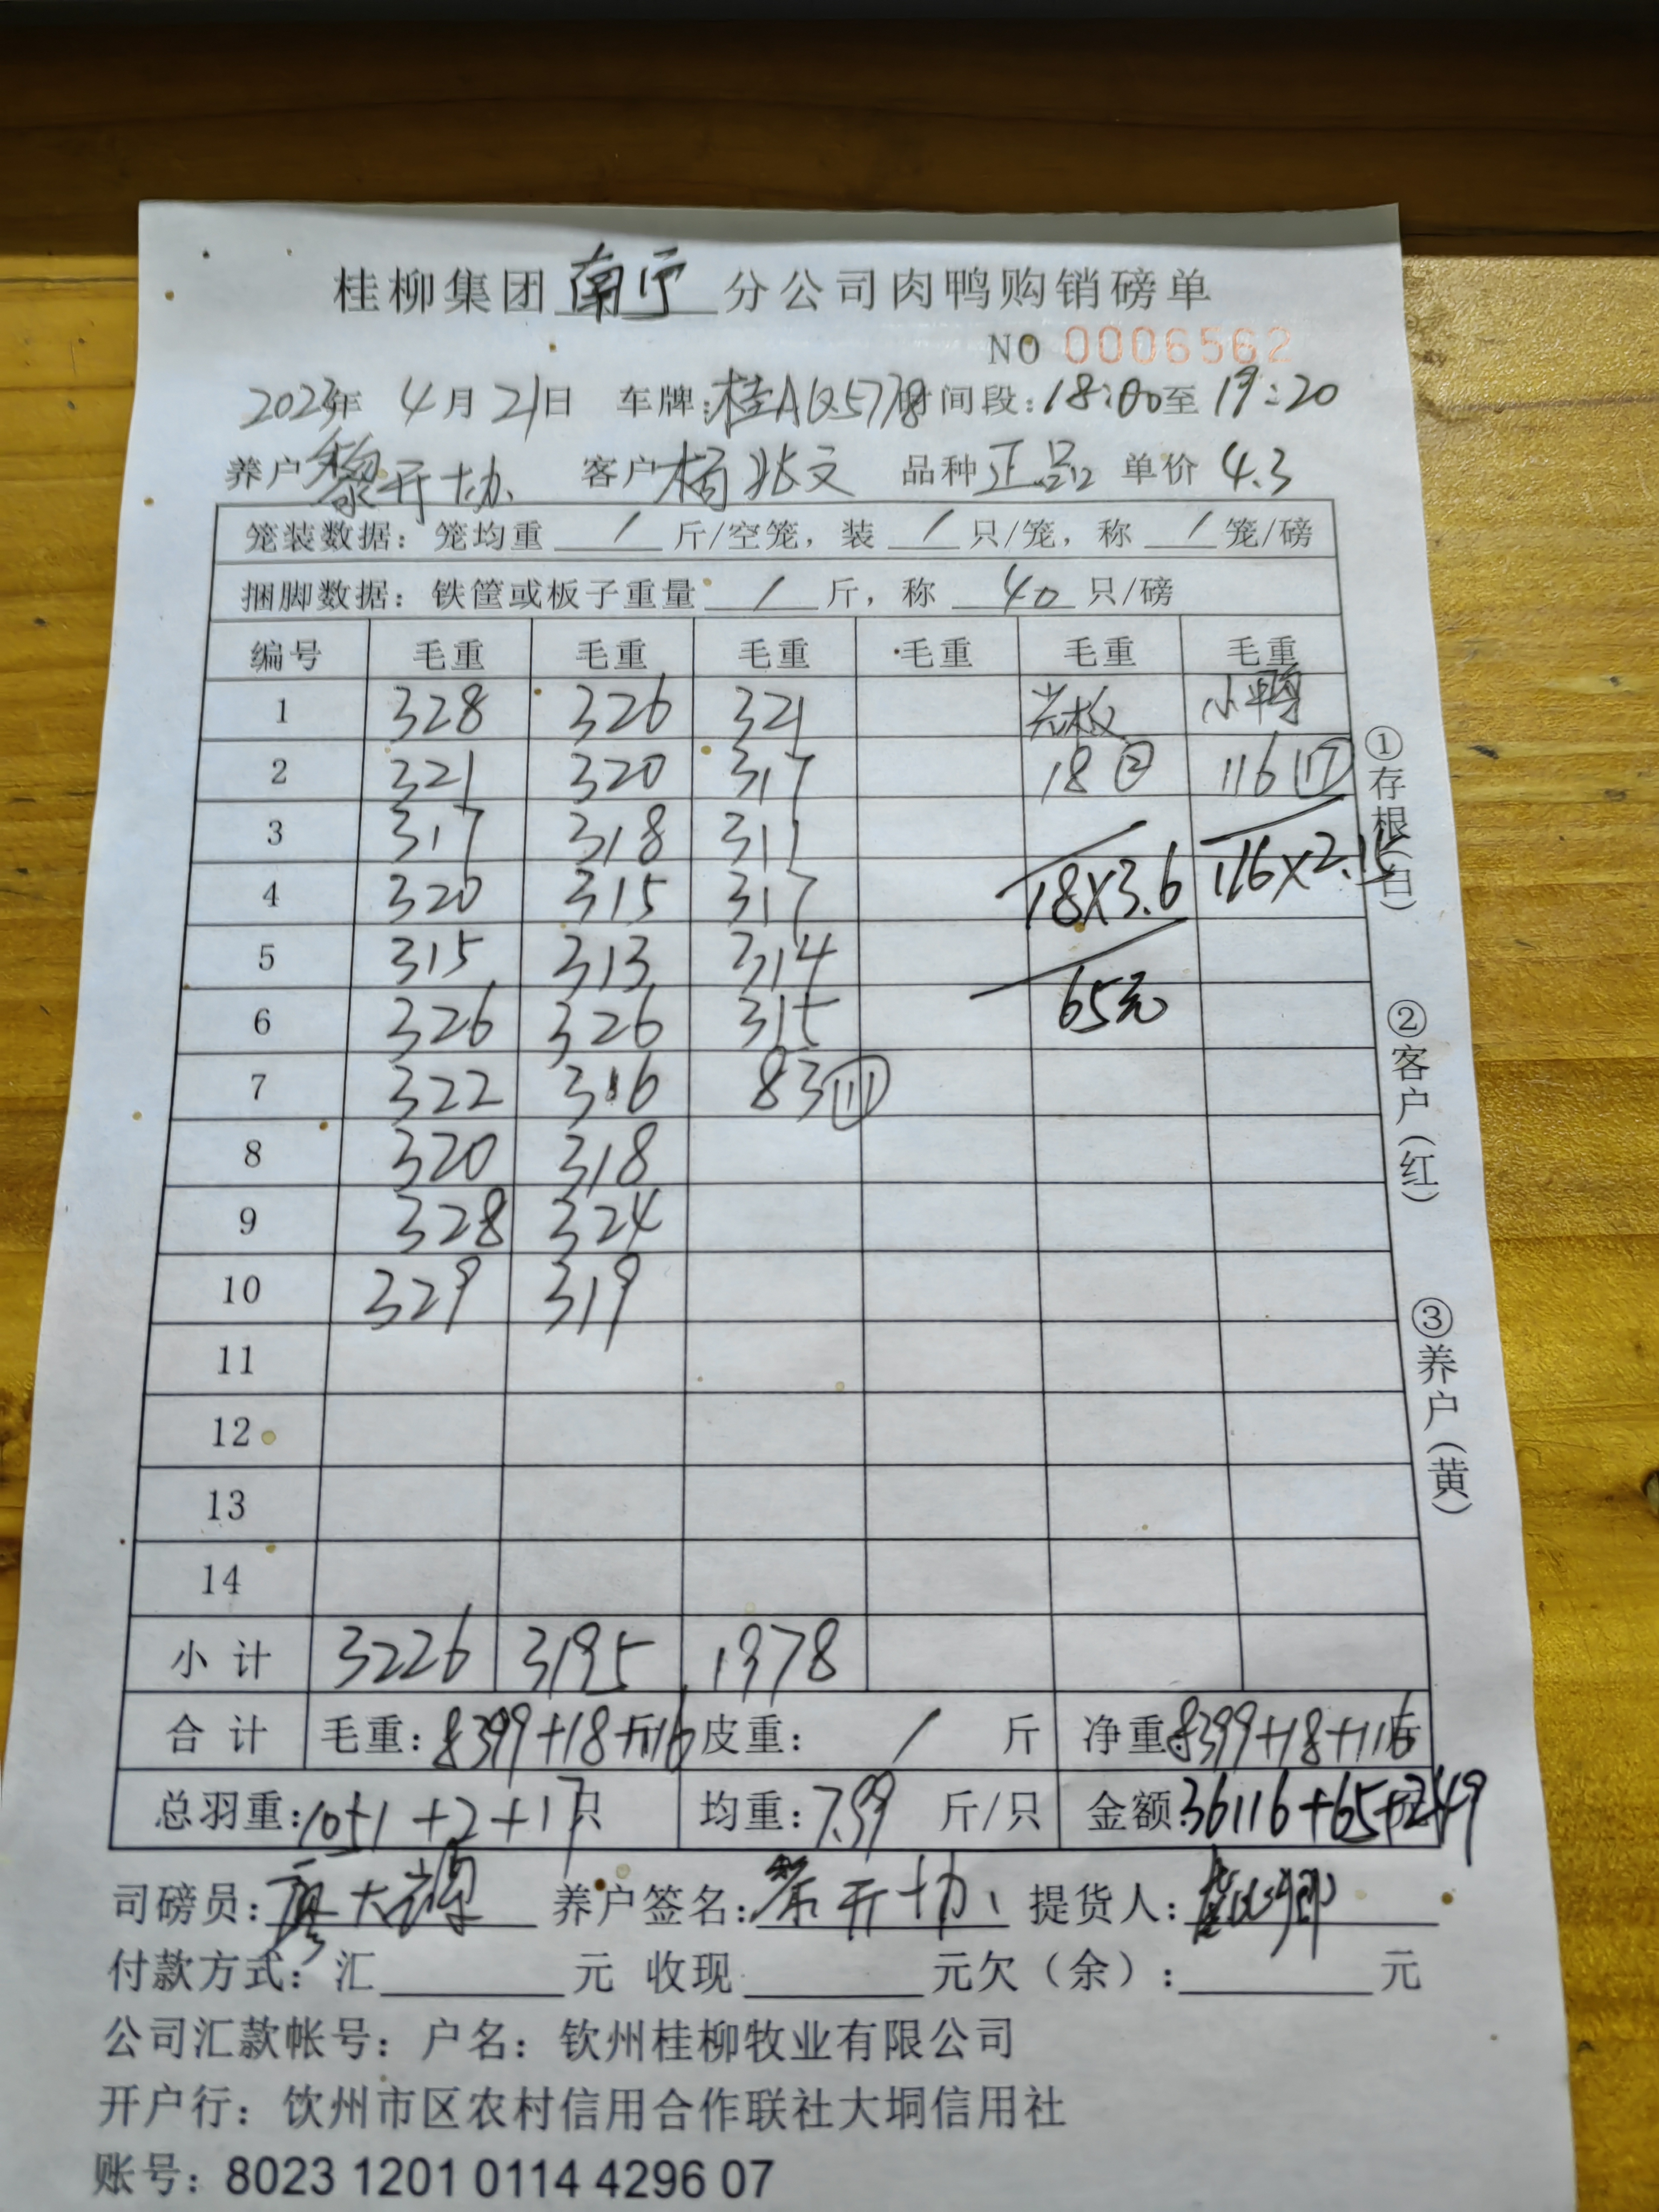 桂柳集团南宁分公司肉鸭购销磅单
NO 0006562
2023年 4月21日 车牌:桂AQ5778 时间段:18:00至19:20
养户黎开协 客户杨兆文 品种正品 单价4.3
笼装数据: 笼均重 / 斤/空笼, 装 / 只/笼, 称 / 笼/磅
捆脚数据: 铁筐或板子重量 / 斤, 称 40 只/磅
编号 毛重 毛重 毛重 毛重 毛重 毛重
1 328 326 321 光板 小鸭
2 321 320 317 18② 116⑰
3 317 318 311
4 320 315 317 18X3.6 116X2.15
5 315 313 314
6 326 326 315 65元
7 322 316 83⑪
8 320 318
9 328 324
10 329 319
11
12
13
14
小计 3226 3195 1978
合计 毛重:8399+18+116斤 皮重: / 斤 净重:8399+18+116斤
总羽重:1051+2+17只 均重:7.99 斤/只 金额:36116+65+249
司磅员: 养户签名:黎开协 提货人:
付款方式: 汇 元 收现 元欠(余): 元
公司汇款帐号: 户名: 钦州桂柳牧业有限公司
开户行: 钦州市区农村信用合作联社大垌信用社
账号: 8023 1201 0114 4296 07
①存根(白) ②客户(红) ③养户(黄)